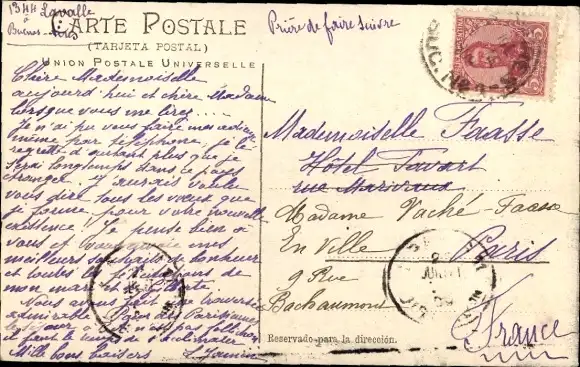 1344 Lavalle
à
Buenos-Aires
CARTE POSTALE
(TARJETA POSTAL)
UNION POSTALE UNIVERSELLE
Prière de faire suivre
Chère Mademoiselle
aujourd'hui et chère Madame
lorsque vous me lirez....
je n'ai pu vous faire mes adieux
même par téléphone, je le
regrette d'autant plus que je
serai longtemps dans ce pays
étranger. j'aurais voulu
vous dire tous les vœux que
je forme pour votre nouvelle
existence. Je pense bien à
vous et vous envoie mes
meilleurs souhaits de bonheur
et toutes les
mon mari et
Nous avons fait une traversée
admirable
le séjour à n'est pas folichon
il faut le temps de s'acclimater
Mille bons baisers
Mademoiselle Faasse
Hôtel Favart
rue Marivaux
Madame Vaché-Faasse
En Ville Paris
9 Rue
Bachaumont
France
Reservado para la dirección.